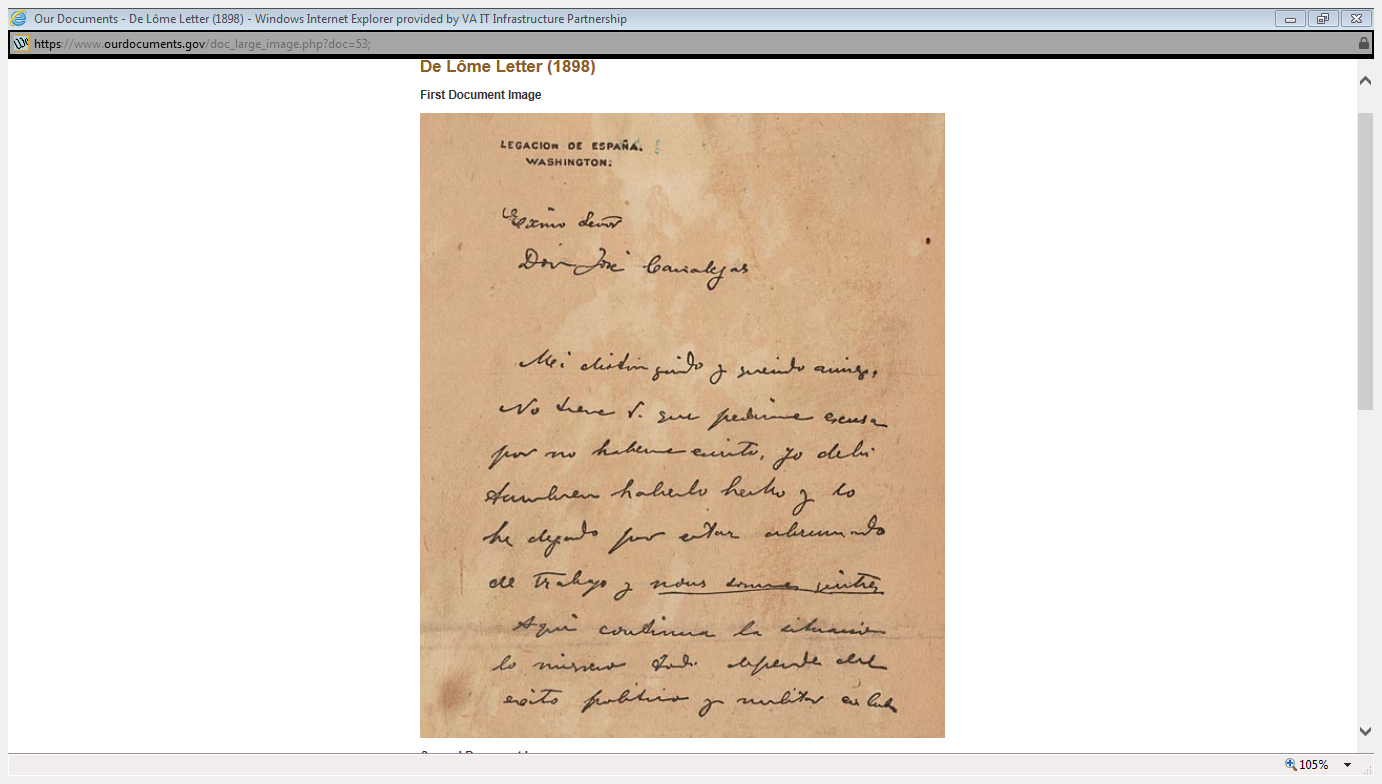 Our Documents - De Lôme Letter (1898) - Windows Internet Explorer provided by VA IT Infrastructure Partnership
https://www.ourdocuments.gov/doc_large_image.php?doc=53;
De Lôme Letter (1898)
First Document Image
LEGACION DE ESPAÑA.
WASHINGTON.
Exmo Señor
Don José Canalejas
Mi distinguido y querido amigo,
No tiene V. que pedirme excusa
por no haberme escrito, yo debi
tambien haberlo hecho y lo
he dejado por estar abrumado
de trabajo y nous sommes quittes
Aqui continua la situacion
lo mismo todo depende del
exito politico y militar en Cuba
105%